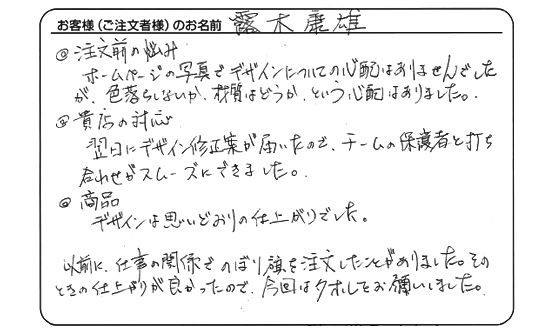 お客様(ご注文者様)のお名前 露木康雄
◎注文前の悩み
ホームページの写真でデザインについての心配はありませんでした
が、色落ちしないか、材質はどうか、という心配はありました。
◎貴店の対応
翌日にデザイン修正案が届いたので、チームの保護者と打ち
合わせがスムーズにできました。
◎商品
デザインは思いどおりの仕上がりでした。
以前に、仕事の関係でのぼり旗を注文したことがありました。その
ときの仕上がりが良かったので、今回はタオルをお願いしました。